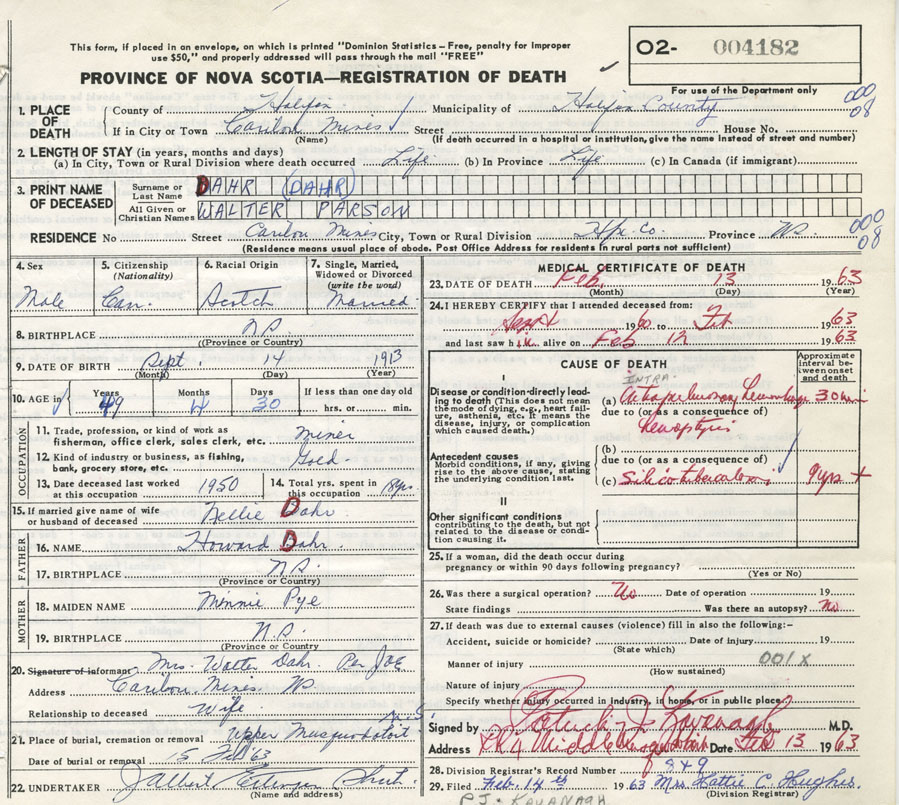 This form, if placed in an envelope, on which is printed "Dominion Statistics – Free, penalty for improper
use $50," and properly addressed will pass through the mail "FREE"
O2- 004182
PROVINCE OF NOVA SCOTIA—REGISTRATION OF DEATH
For use of the Department only
000
08
1. PLACE OF DEATH
County of Halifax Municipality of Halifax County
If in City or Town Caribou Mines Street House No.
(Name) (If death occurred in a hospital or institution, give the name instead of street and number)
2. LENGTH OF STAY (in years, months and days)
(a) In City, Town or Rural Division where death occurred Life (b) In Province Life (c) In Canada (if immigrant)
3. PRINT NAME OF DECEASED
Surname or Last Name DAHR (DAHR)
All Given or Christian Names WALTER PARSON
RESIDENCE No Street Caribou Mines City, Town or Rural Division Hfx. Co. Province N.S.
000
08
(Residence means usual place of abode. Post Office Address for residents in rural parts not sufficient)
4. Sex
Male
5. Citizenship
(Nationality)
Can.
6. Racial Origin
Scotch
7. Single, Married, Widowed or Divorced
(write the word)
Married
8. BIRTHPLACE N.S.
(Province or Country)
9. DATE OF BIRTH Sept. 14 1913
(Month) (Day) (Year)
10. AGE in Years 49 Months 4 Days 30
If less than one day old
hrs. or min.
OCCUPATION
11. Trade, profession, or kind of work as fisherman, office clerk, sales clerk, etc. Miner
12. Kind of industry or business, as fishing, bank, grocery store, etc. Gold
13. Date deceased last worked at this occupation 1950
14. Total yrs. spent in this occupation 18 yrs.
15. If married give name of wife or husband of deceased Nellie Dahr
FATHER
16. NAME Howard Dahr
17. BIRTHPLACE N.S.
(Province or Country)
MOTHER
18. MAIDEN NAME Minnie Pye
19. BIRTHPLACE N.S.
(Province or Country
20. Signature of informant Mrs. Walter Dahr. Per
Address Caribou Mines N.S.
Relationship to deceased Wife
21. Place of burial, cremation or removal Upper Musquodoboit
Date of burial or removal 15 Feb 63
22. UNDERTAKER
(Name and address)
MEDICAL CERTIFICATE OF DEATH
23. DATE OF DEATH Feb 13 1963
(Month) (Day) (Year)
24. I HEREBY CERTIFY that I attended deceased from:
Sept 1960 to Feb 1963
and last saw him alive on Feb 12 1963
CAUSE OF DEATH
Approximate interval between onset and death
I
Disease or condition-directly leading to death (This does not mean the mode of dying, e.g., heart failure, asthenia, etc. It means the disease, injury, or complication which caused death.)
INTRA
(a) Intrapulmonary hemorrhage 30 min
due to (or as a consequence of)
hemoptysis
Antecedent causes
Morbid conditions, if any, giving rise to the above cause, stating the underlying condition last.
(b)
due to (or as a consequence of)
(c) Silicotuberculosis 9 yrs +
II
Other significant conditions
contributing to the death, but not related to the disease or condition causing it.
25. If a woman, did the death occur during pregnancy or within 90 days following pregnancy?
(Yes or No)
26. Was there a surgical operation? No Date of operation 19
State findings Was there an autopsy? No
27. If death was due to external causes (violence) fill in also the following:–
Accident, suicide or homicide? Date of injury 19
(State which)
Manner of injury 001X
(How sustained)
Nature of injury
Specify whether injury occurred in industry, in home, or in public place
Signed by Patrick J Kavanagh M.D.
Address RR 4 Middle Musquodoboit Date Feb 13 1963
28. Division Registrar's Record Number 849
29. Filed Feb. 14th 1963 Mrs Hattie C. Hughes
(Division Registrar)
PJ. KAVANAGH